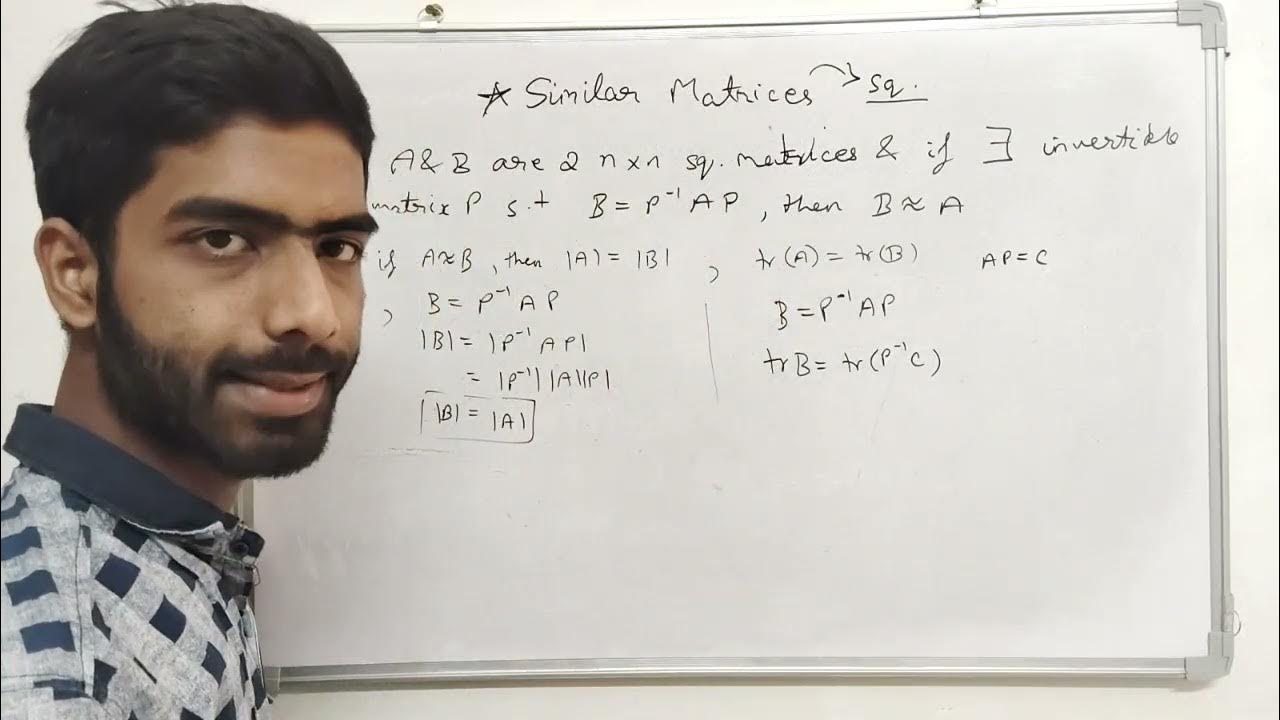 * Similar Matrices → sq.
A & B are 2 n×n sq. matrices & if ∃ invertible
matrix P s.t B = P⁻¹AP, then B ≈ A
if A≈B, then |A| = |B| , tr(A) = tr(B) AP = C
, B = P⁻¹AP
|B| = |P⁻¹AP|
= |P⁻¹||A||P|
|B| = |A|
B = P⁻¹AP
trB = tr(P⁻¹C)